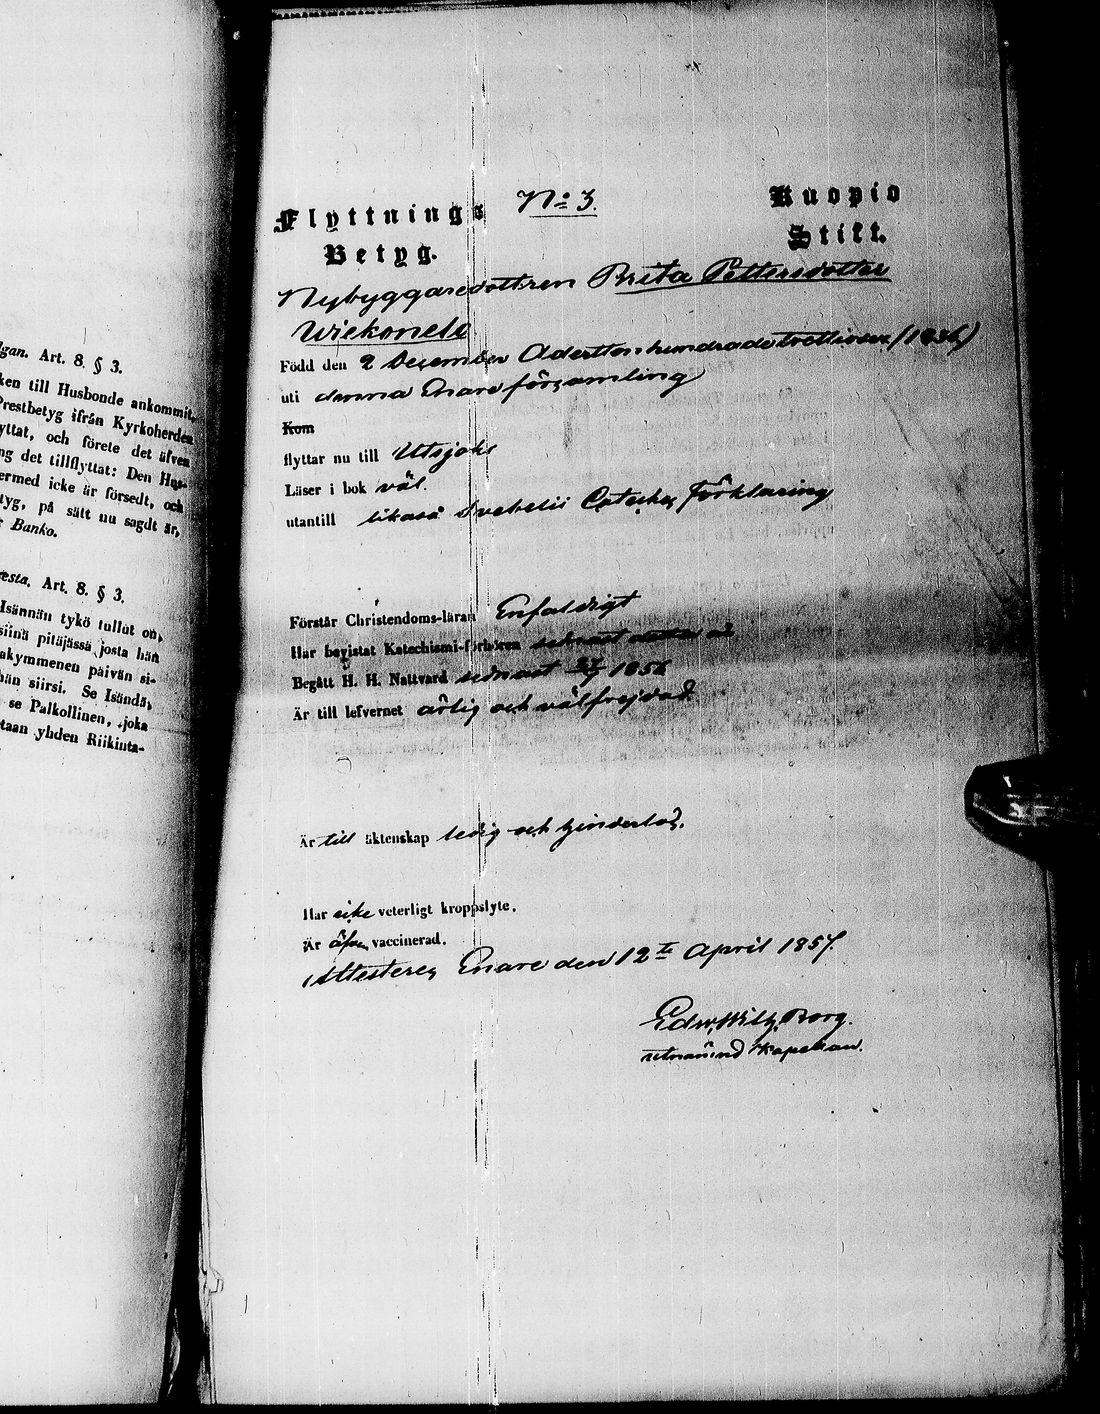 lgan. Art. 8. § 3.
ken till Husbonde ankommit,
Prestbetyg ifrån Kyrkoherden
yttat, och förete det äfven
ng det tillflyttat: Den Hus-
ermed icke är försedt, och
tyg, på sätt nu sagdt är,
Banko.
esta. Art. 8. § 3.
Isännän tykö tullut on,
siinä pitäjässä josta hän
akymmenen päivän si-
hän siirsi. Se Isändä,
se Palkollinen, joka
taan yhden Riikinta-
Flyttnings
Betyg.
No 3.
Kuopio
Stift.
Nybyggaredottren Brita Pettersdotter
Wiekonela
Född den 2 December Adertonhundradetrettiosex (1836)
uti denna Enare församling
Kom
flyttar nu till Utsjoki
Läser i bok väl.
utantill likaså Svebelii Cateches förklaring
Förstår Christendoms-läran Enfaldigt
Har bevistat Katechismi-förhören sednast detta år
Begått H. H. Nattvard sednast 1856
Är till lefvernet ärlig och välfrejdad.
Är till äktenskap ledig och hinderlös.
Har icke veterligt kroppslyte.
Är äfven vaccinerad.
Attesteres Enare den 12te April 1857.
Edw. Wilh. Borg.
utnämnd Kapellan.